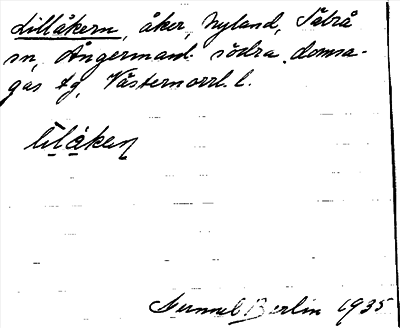 Lillåkern, åker, Nyland, Säbrå
sn, Ångermanl. södra domsa-
gas tg, Västernorrl. l.
lilåken
Gunnel Berlin 1935